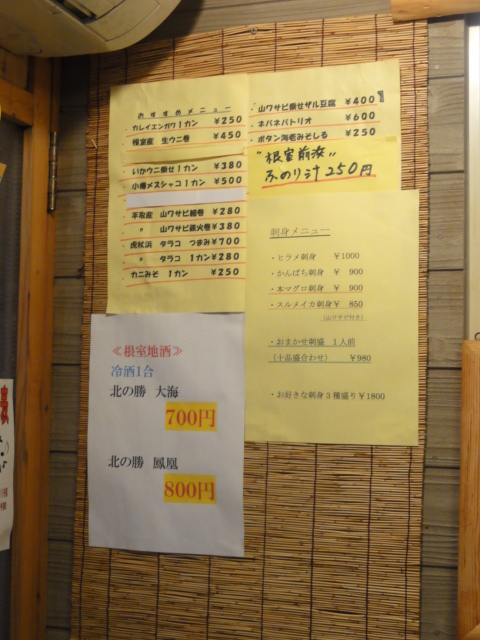 おすすめメニュー
・カレイエンガワ1カン ¥250
・根室産 生ウニ巻 ¥450
・いかウニ乗せ1カン ¥380
・小樽メスシャコ1カン ¥500
・平取産 山ワサビ細巻 ¥280
・〃 山ワサビ鉄火巻 ¥380
・虎杖浜 タラコ つまみ ¥700
・〃 タラコ 1カン ¥280
・カニみそ 1カン ¥250
・山ワサビ乗せザル豆腐 ¥400
・ネバネバトリオ ¥600
・ボタン海老みそしる ¥250
"根室前浜"
ふのり汁 250円
刺身メニュー
・ヒラメ刺身 ¥1000
・かんぱち刺身 ¥ 900
・本マグロ刺身 ¥ 900
・スルメイカ刺身 ¥ 850
(山ワサビ付き)
・おまかせ刺盛 1人前
(十品盛合わせ) ¥980
・お好きな刺身3種盛り ¥1800
≪根室地酒≫
冷酒1合
北の勝 大海
700円
北の勝 鳳凰
800円